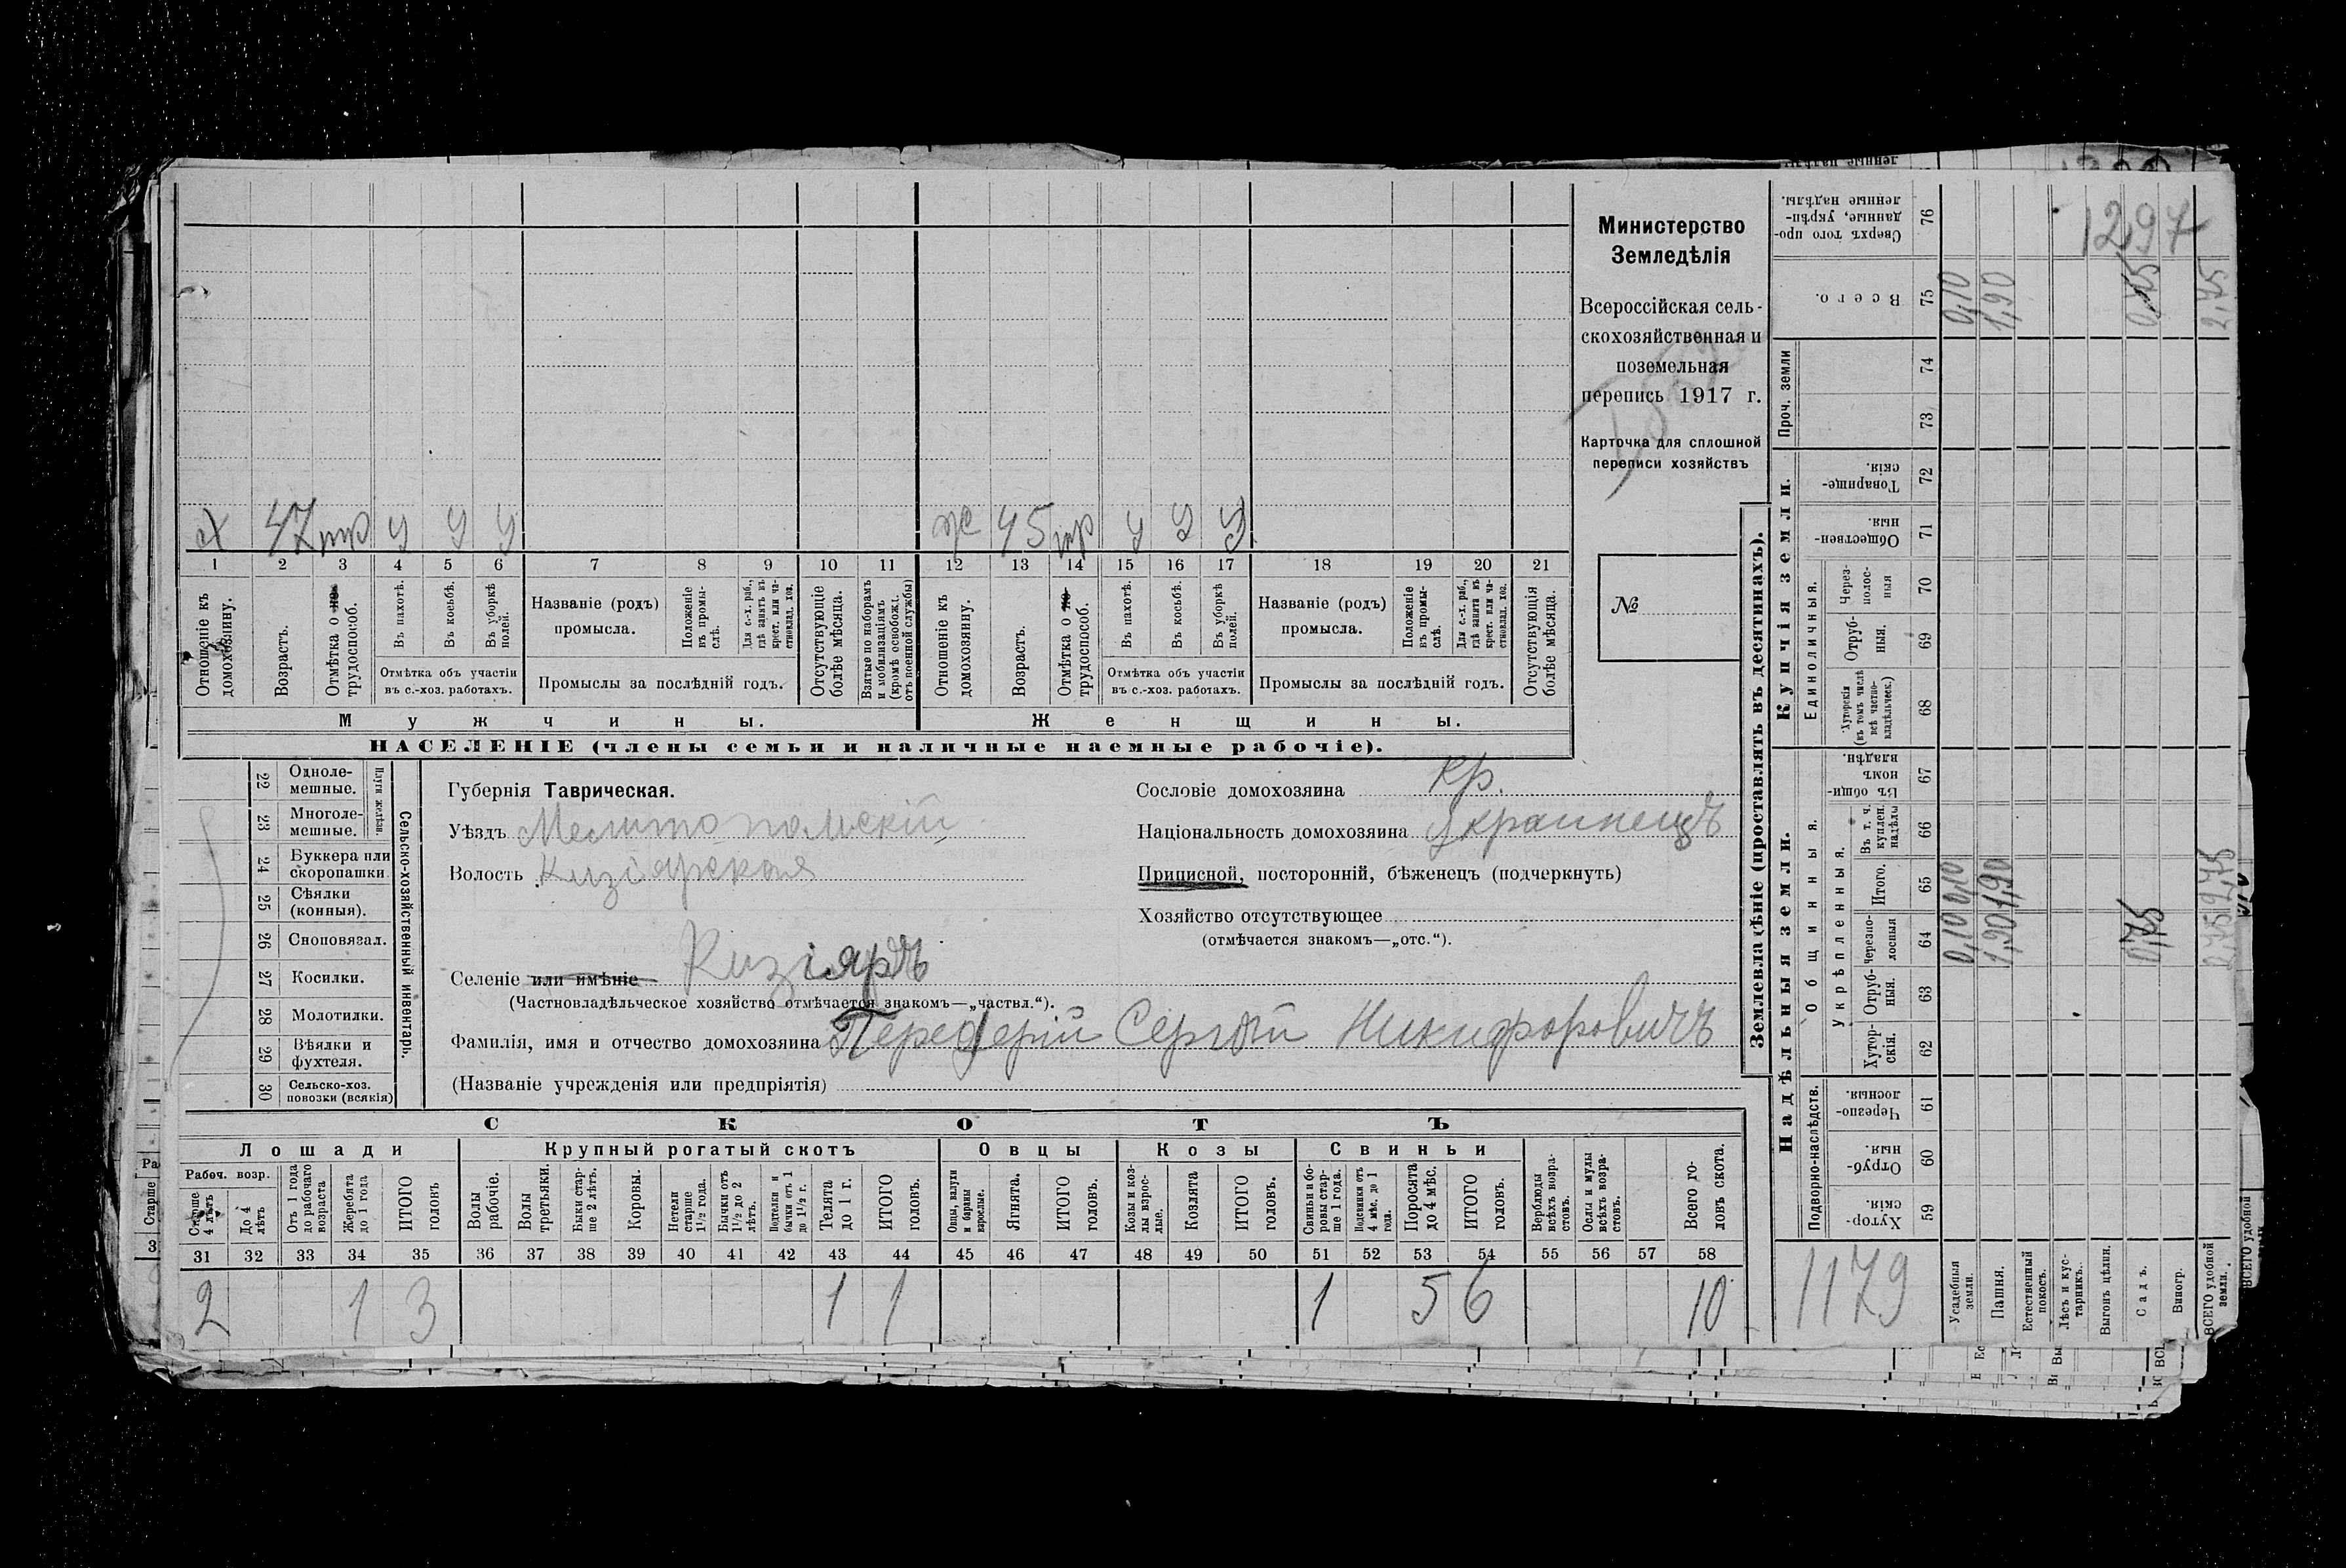 х 47 тр у у у ж 45 тр у у у
1 2 3 4 5 6 7 8 9 10 11 12 13 14 15 16 17 18 19 20 21
Отношеніе къ домохозяину.
Возрастъ.
Отмѣтка о не- трудоспособ.
Въ пахотѣ.
Въ косьбѣ.
Въ уборкѣ полей.
Отмѣтка объ участіи
въ с.-хоз. работахъ.
Названіе (родъ)
промысла.
Положеніе въ промы- слѣ.
Для с.-х. раб., гдѣ занятъ въ крест. или ча- стновлад. хоз.
Промыслы за послѣдній годъ.
Отсутствующіе болѣе мѣсяца.
Взятые по наборамъ и мобилизаціямъ (кромѣ освобожд. отъ военной службы)
Отношеніе къ домохозяину.
Возрастъ.
Отмѣтка о не- трудоспособ.
Въ пахотѣ.
Въ косьбѣ.
Въ уборкѣ полей.
Отмѣтка объ участіи
въ с.-хоз. работахъ.
Названіе (родъ)
промысла.
Положеніе въ промы- слѣ.
Для с.-х. раб., гдѣ занята въ крест. или ча- стновлад. хоз.
Промыслы за послѣдній годъ.
Отсутствующія болѣе мѣсяца.
Мужчины.
Женщины.
НАСЕЛЕНІЕ (члены семьи и наличные наемные рабочіе).
Министерство
Земледѣлія
Всероссійская сель-
скохозяйственная и
поземельная
перепись 1917 г.
Карточка для сплошной
переписи хозяйствъ
№
22 Одноле- мешные.
23 Многоле- мешные.
Плуги желѣзн.
24 Буккера или скоропашки
25 Сѣялки (конныя).
26 Сноповязал.
27 Косилки.
28 Молотилки.
29 Вѣялки и фухтеля.
30 Сельско-хоз. повозки (всякія)
Сельско-хозяйственный инвентарь.
Губернія Таврическая.
Уѣздъ Мелитопольскій
Волость Кизіярская
Селеніе или имѣніе Кизіяръ
(Частновладѣльческое хозяйство отмѣчается знакомъ—„частвл.“).
Фамилія, имя и отчество домохозяина Передерій Сергѣй Никифоровичъ
(Названіе учрежденія или предпріятія)
Сословіе домохозяина кр.
Національность домохозяина украинецъ
Приписной, посторонній, бѣженецъ (подчеркнуть)
Хозяйство отсутствующее
(отмѣчается знакомъ—„отс.“).
СКОТЪ
Лошади
Крупный рогатый скотъ
Овцы
Козы
Свиньи
Рабоч. возр.
Старше 4 лѣтъ
До 4 лѣтъ
Отъ 1 года до рабочаго возраста
Жеребята до 1 года
ИТОГО головъ
Волы рабочіе.
Волы третьяки.
Быки стар- ше 2 лѣтъ.
Коровы.
Нетели старше 1½ года.
Бычки отъ 1½ до 2 лѣтъ.
Подтелки и бычки отъ 1 до 1½ г.
Телята до 1 г.
ИТОГО головъ.
Овцы, валухи и бараны взрослые.
Ягнята.
ИТОГО головъ.
Козы и коз- лы взрос- лые.
Козлята
ИТОГО головъ.
Свиньи и бо- ровы стар- ше 1 года.
Подсвинки отъ 4 мѣс. до 1 года.
Поросята до 4 мѣс.
ИТОГО головъ.
Верблюды всѣхъ возра- стовъ.
Ослы и мулы всѣхъ возра- стовъ.
Всего го- ловъ скота.
31 32 33 34 35 36 37 38 39 40 41 42 43 44 45 46 47 48 49 50 51 52 53 54 55 56 57 58
2 1 3 1 1 1 5 6 10
Землевладѣніе (проставлять въ десятинахъ).
Надѣльныя земли.
Купчія земли.
Проч. земли
Подворно-наслѣдств.
Общинныя.
Укрѣпленныя.
Единоличныя.
Хутор- скія. 59
Отруб- ныя. 60
Черезпо- лосныя. 61
Хутор- скія. 62
Отруб- ныя. 63
Черезпо- лосныя 64
Итого. 65
Въ т. ч. куплен. надѣлы 66
Въ общи- номъ владѣн. 67
Хуторскія (въ томъ числѣ всѣ частно- владѣльческ.) 68
Отруб- ныя. 69
Через- полос- ныя 70
Обществен- ныя. 71
Товарище- скія. 72
73
74
Всего. 75
Сверхъ того про- данные, укрѣп- ленные надѣлы. 76
1179
1297
Усадебныя земли. 0,10 0,10 0,10
Пашня. 1,90 1,90 1,90
Естественный покосъ.
Лѣсъ и кус- тарникъ.
Выгонъ цѣлин.
Садъ. 0,75 0,75
Виногр.
ВСЕГО удобной земли. 2,75 2,75 2,75